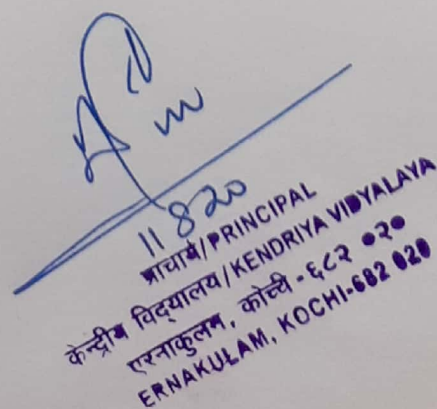 11 8 20
प्राचार्य/PRINCIPAL
केन्द्रीय विद्यालय/KENDRIYA VIDYALAYA
एरनाकुलम, कोच्ची - ६८२ ०२०
ERNAKULAM, KOCHI-682 020